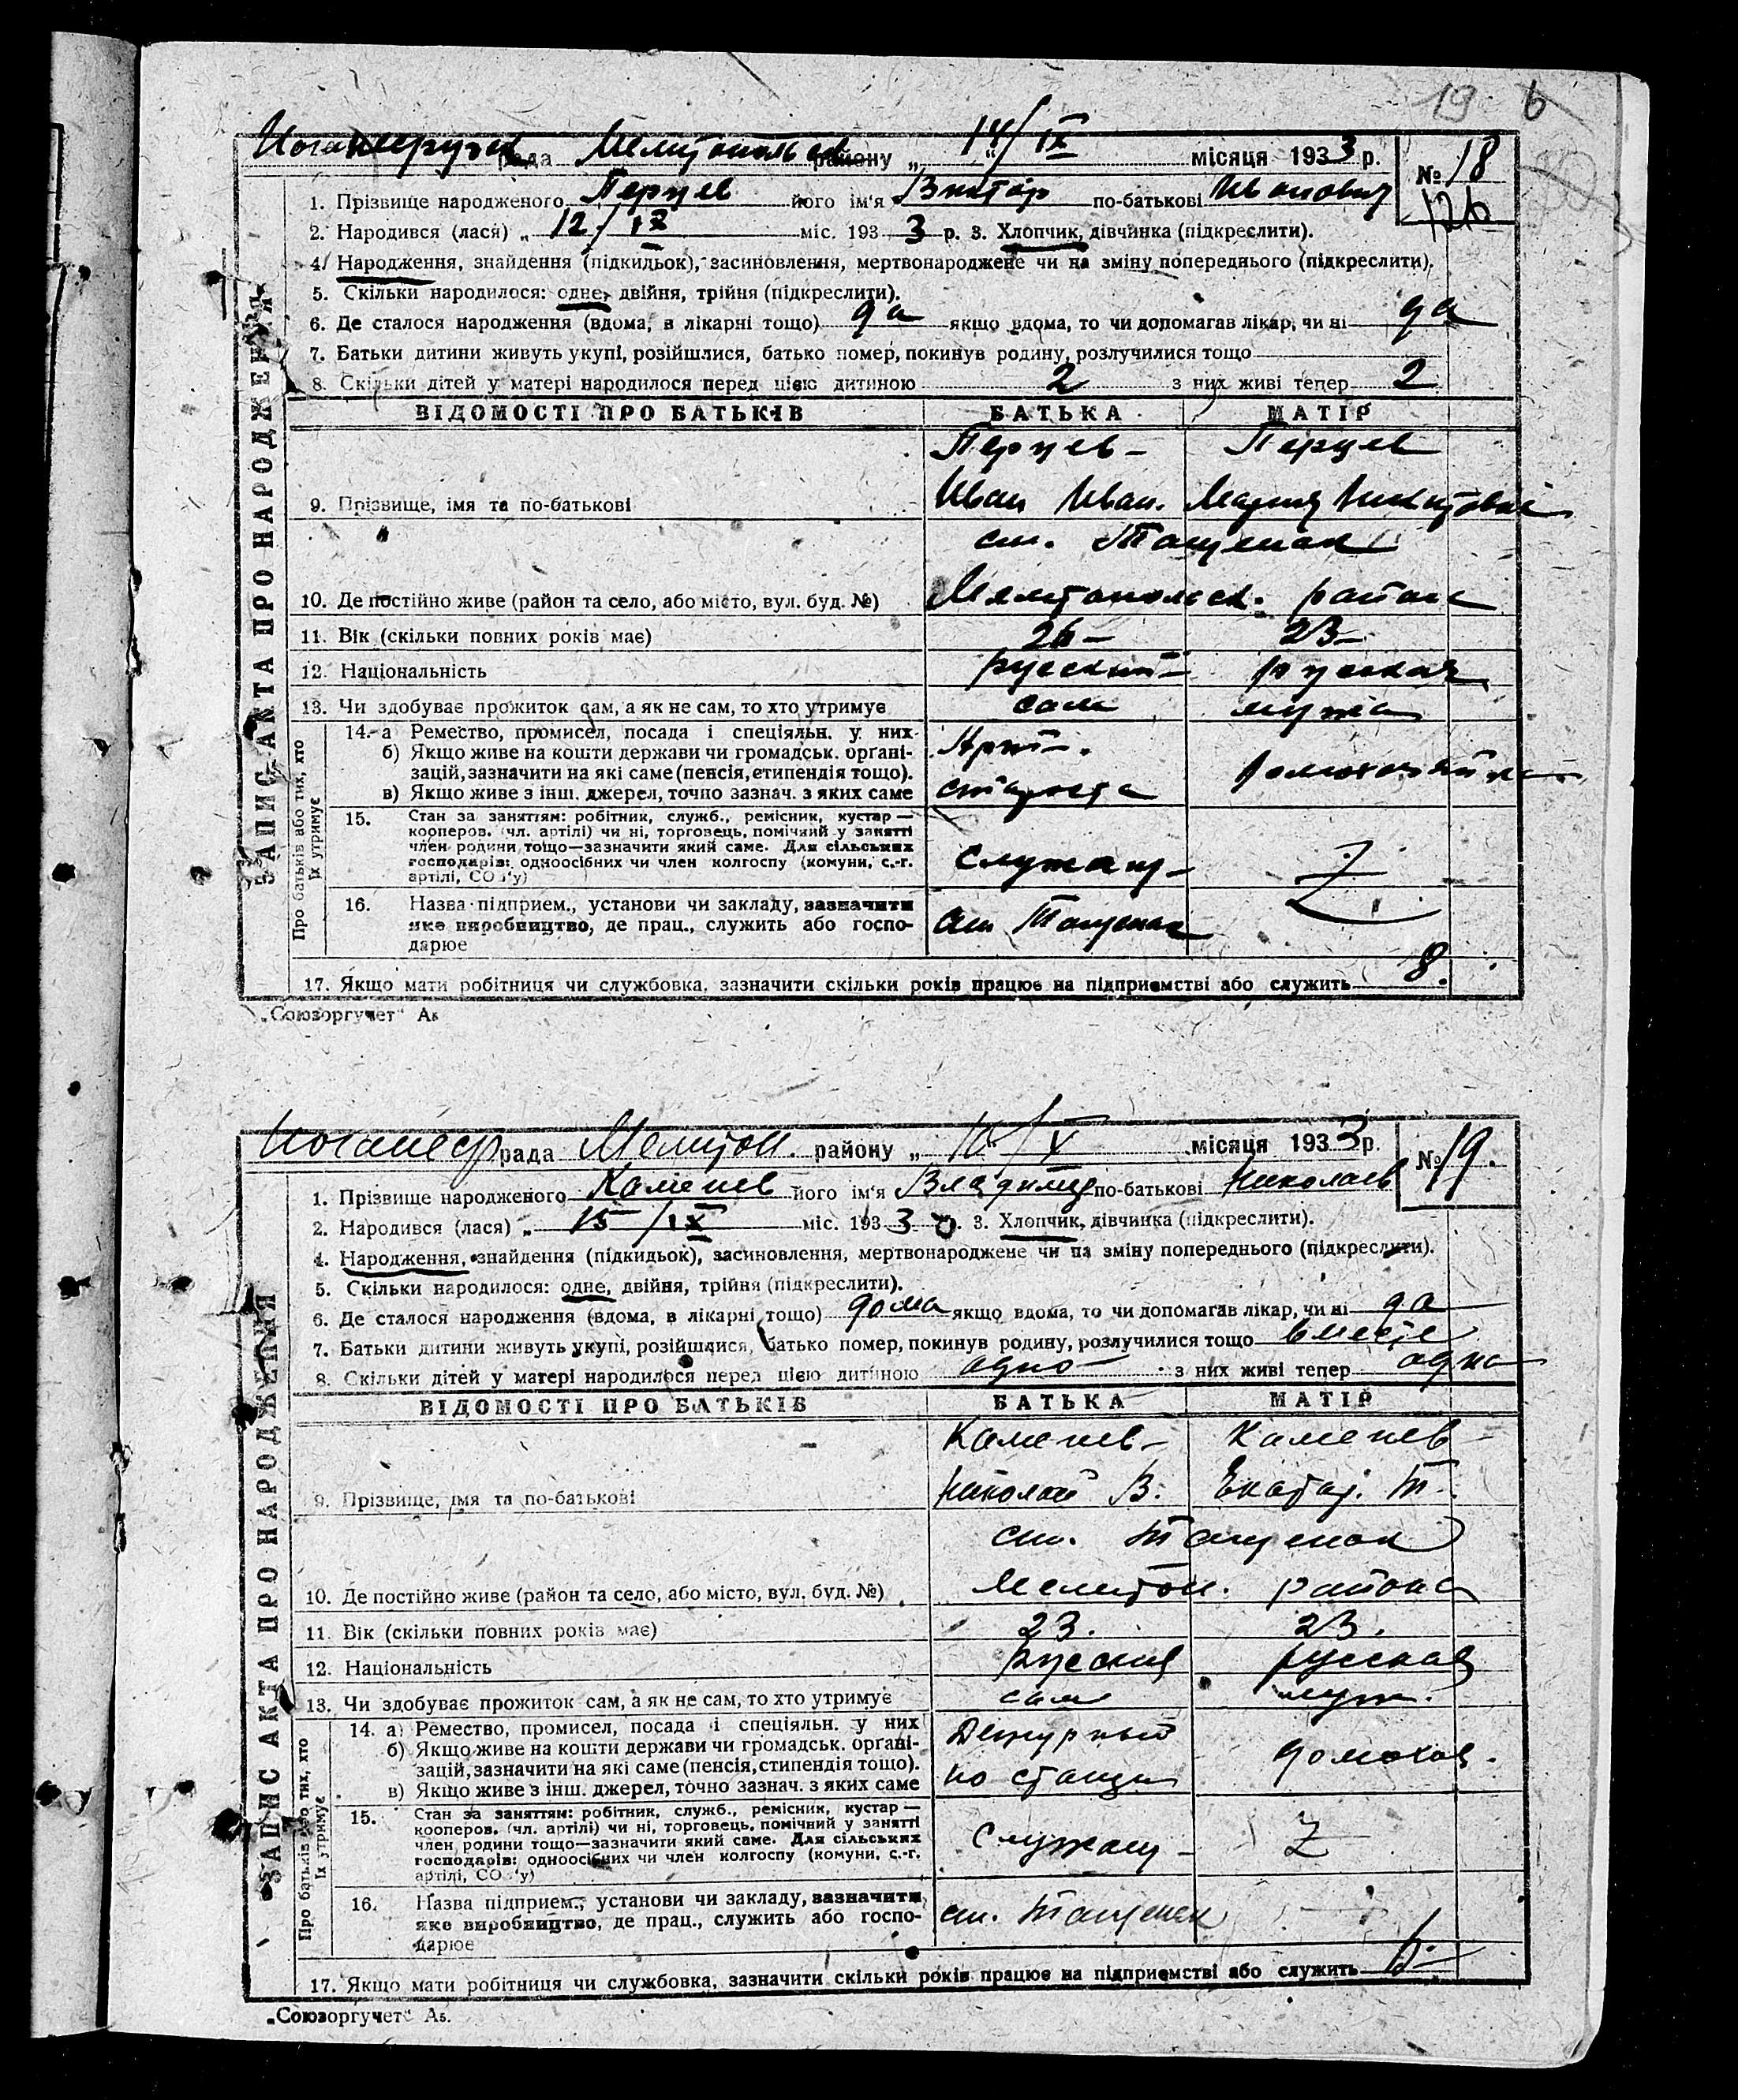 19 6
рада Мелитопольск району „ 14/IX " місяця 1933 р.
№ 18
126
1. Прізвище народженого Перцев його ім'я Виктор по-батькові Иванович
2. Народився (лася) „ 12/IX міс. 1933 р. 3. Хлопчик, дівчинка (підкреслити).
4. Народження, знайдення (підкидьок), засиновлення, мертвонароджене чи на зміну попереднього (підкреслити).
5. Скільки народилося: одне, двійня, трійня (підкреслити).
6. Де сталося народження (вдома, в лікарні тощо) да якщо вдома, то чи допомагав лікар, чи ні да
7. Батьки дитини живуть укупі, розійшлися, батько помер, покинув родину, розлучилися тощо
8. Скільки дітей у матері народилося перед цією дитиною 2 з них живі тепер 2
ЗАПИС АКТА ПРО НАРОДЖЕННЯ
ВІДОМОСТІ ПРО БАТЬКІВ БАТЬКА МАТІР
Перцев Перцев
9. Прізвище, імя та по-батькові Иван Иван. Мария Никитовна
ст. Тащенак
10. Де постійно живе (район та село, або місто, вул. буд. №) Мелитопольск. района
11. Вік (скільки повних років має) 26 23
12. Національність русский русская
13. Чи здобуває прожиток сам, а як не сам, то хто утримує сам мужа
Про батьків або тих, хто їх утримує
14. а Ремество, промисел, посада і спеціяльн. у них
б) Якщо живе на кошти держави чи громадськ. органі-
зацій, зазначити на які саме (пенсія, стипендія тощо). домохозяйка
в) Якщо живе з інш. джерел, точно зазнач. з яких саме староста
15. Стан за заняттям: робітник, служб., ремісник, кустар —
кооперов. (чл. артілі) чи ні, торговець, помічний у занятті
член родини тощо—зазначити який саме. Для сільських
господарів: одноосібних чи член колгоспу (комуни, с.-г. служащ
артілі, СОЗ'у)
16. Назва підприєм., установи чи закладу, зазначити
яке виробництво, де прац., служить або госпо- ст Тащенак
дарює
17. Якщо мати робітниця чи службовка, зазначити скільки років працює на підприємстві або служить 8.
„Союзоргучет" А5
рада Мелитоп. району „ 10/X місяця 1933 р.
№ 19.
1. Прізвище народженого Каменев його ім'я Владимир по-батькові Николаев
2. Народився (лася) „ 15/IX міс. 1933 р. 3. Хлопчик, дівчинка (підкреслити).
4. Народження, знайдення (підкидьок), засиновлення, мертвонароджене чи на зміну попереднього (підкреслити).
5. Скільки народилося: одне, двійня, трійня (підкреслити).
6. Де сталося народження (вдома, в лікарні тощо) дома якщо вдома, то чи допомагав лікар, чи ні да
7. Батьки дитини живуть укупі, розійшлися, батько помер, покинув родину, розлучилися тощо вместе
8. Скільки дітей у матері народилося перед цією дитиною одно з них живі тепер одна
ЗАПИС АКТА ПРО НАРОДЖЕННЯ
ВІДОМОСТІ ПРО БАТЬКІВ БАТЬКА МАТІР
Каменев Каменев
9. Прізвище, імя та по-батькові Николай В. Екатер. Т.
ст. Тащенак
10. Де постійно живе (район та село, або місто, вул. буд. №) Мелитоп. района
11. Вік (скільки повних років має) 23. 23.
12. Національність русский русская
13. Чи здобуває прожиток сам, а як не сам, то хто утримує сам муж.
Про батьків або тих, хто їх утримує
14. а) Ремество, промисел, посада і спеціяльн. у них Дежурный
б) Якщо живе на кошти держави чи громадськ. органі-
зацій, зазначити на які саме (пенсія, стипендія тощо). домохоз.
в) Якщо живе з інш. джерел, точно зазнач. з яких саме по станции
15. Стан за заняттям: робітник, служб., ремісник, кустар —
кооперов. (чл. артілі) чи ні, торговець, помічний у занятті
член родини тощо—зазначити який саме. Для сільських служащ
господарів: одноосібних чи член колгоспу (комуни, с.-г.
артілі, СОЗ'у)
16. Назва підприєм., установи чи закладу, зазначити
яке виробництво, де прац., служить або госпо- ст. Тащенак
дарює
17. Якщо мати робітниця чи службовка, зазначити скільки років працює на підприємстві або служить
„Союзоргучет" А5.